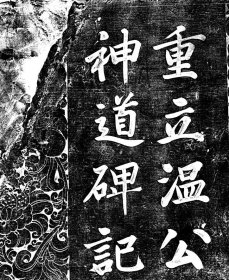 重立温公
神道碑記